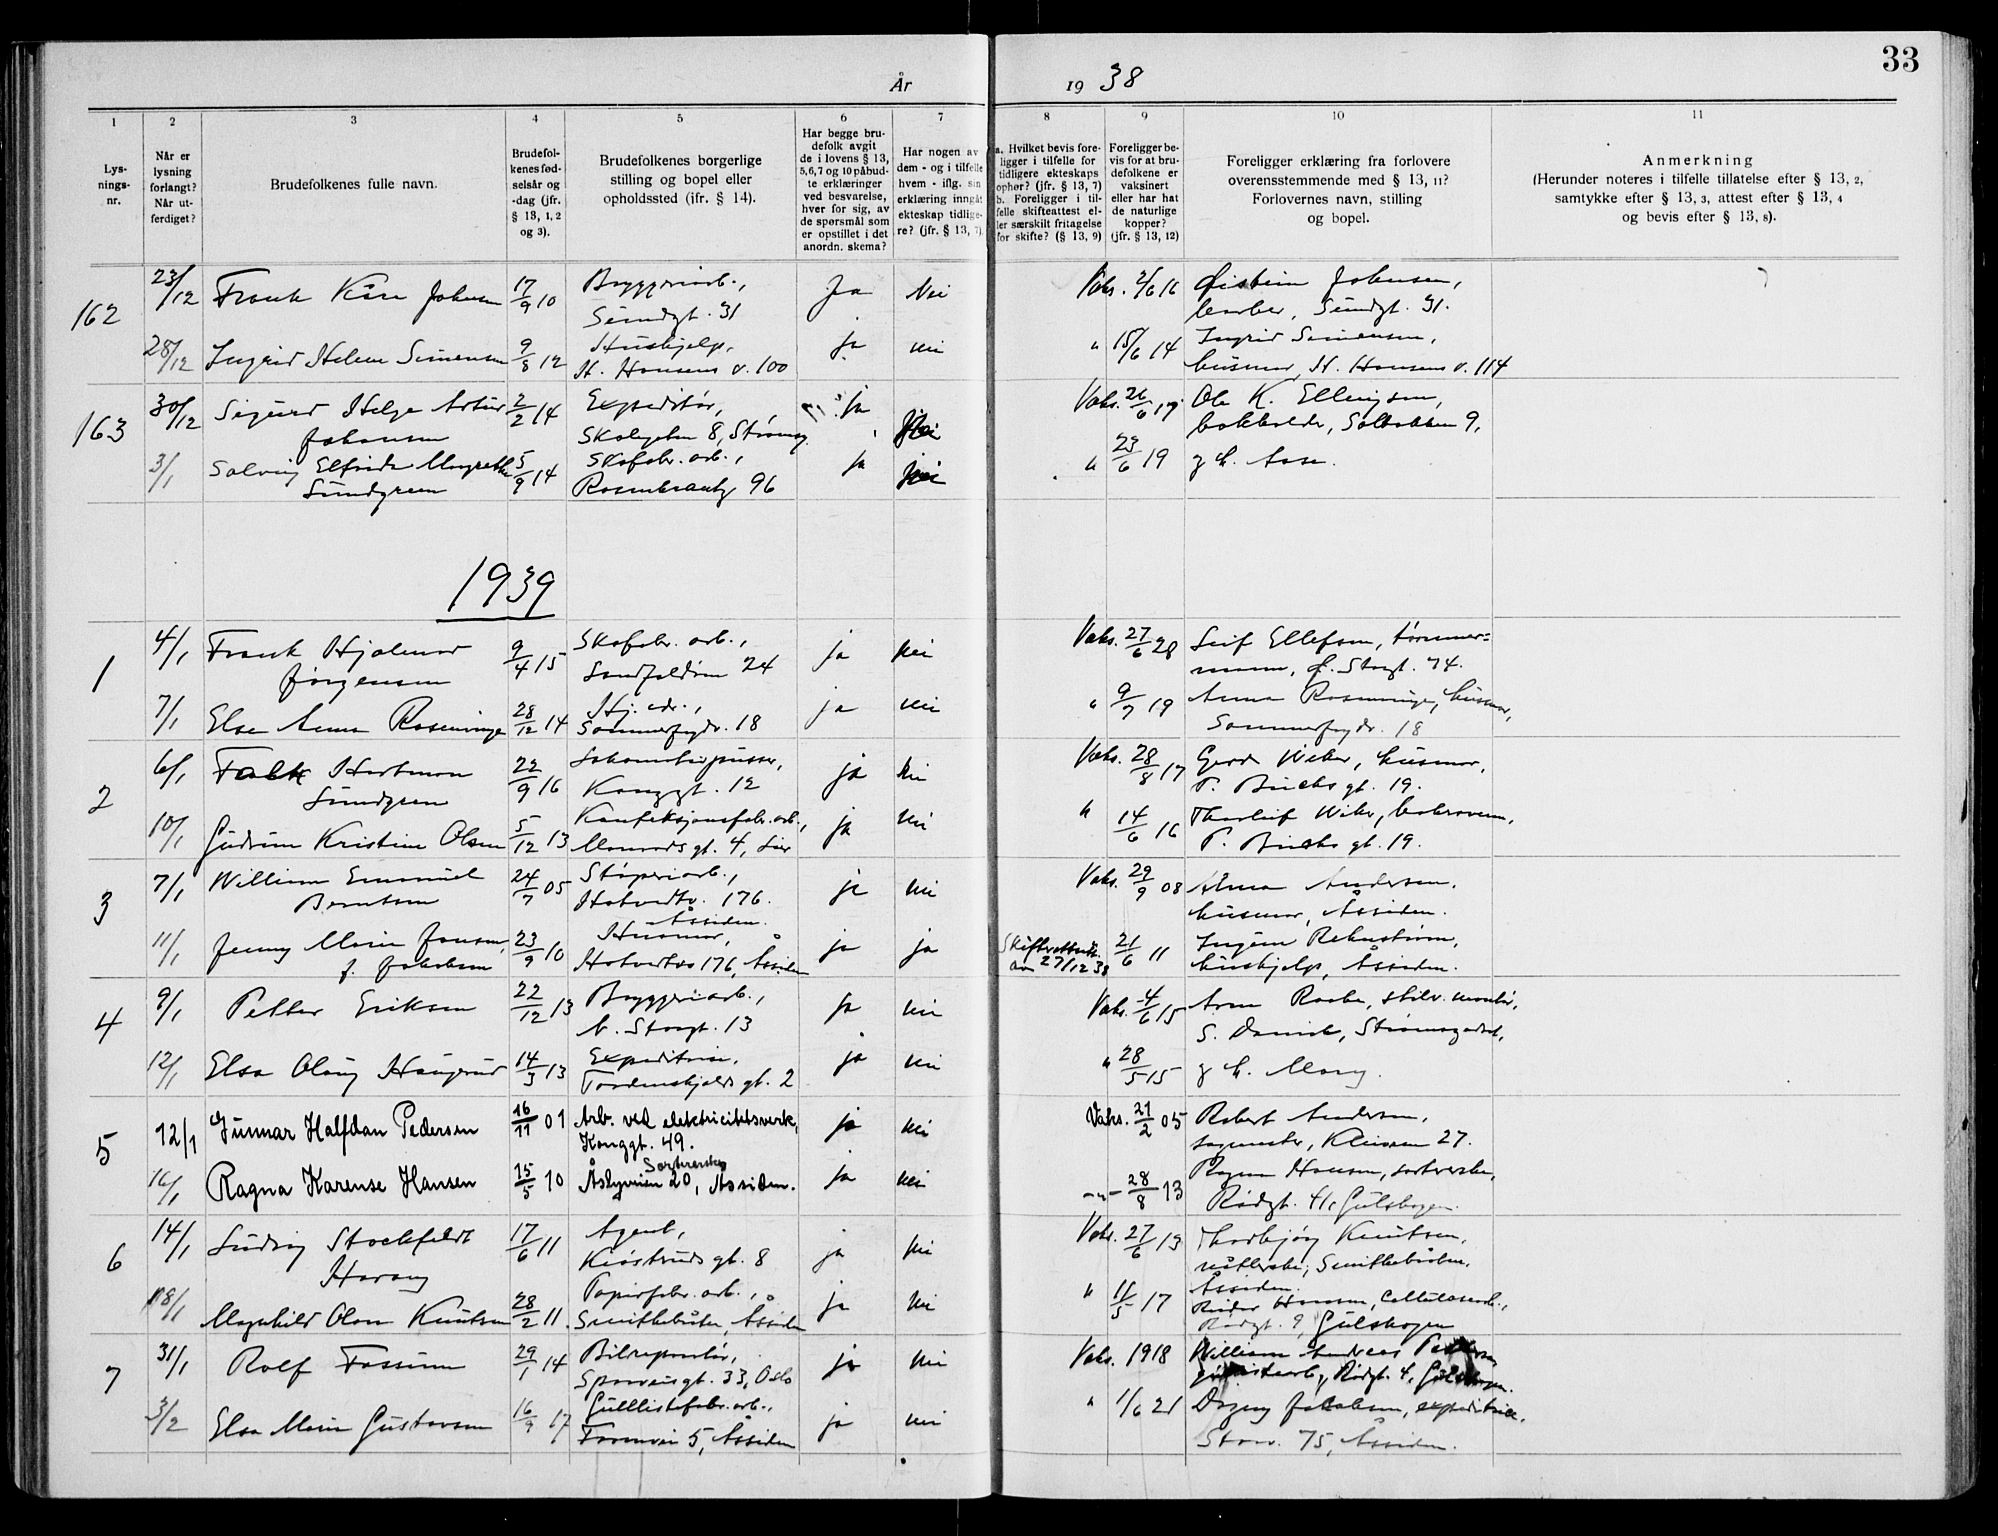 33
År 1938
1 2 3 4 5 6 7 8 9 10 11
Lys-
nings-
nr.
Når er
lysning
forlangt?
Når ut-
ferdiget?
Brudefolkenes fulle navn.
Brudefol-
kenes fød-
selsår og
-dag (jfr.
§ 13, 1, 2
og 3).
Brudefolkenes borgerlige
stilling og bopel eller
opholdssted (ifr. § 14).
Har begge bru-
defolk avgit
de i lovens § 13,
5,6,7 og 10 påbud-
te erklæringer
ved besvarelse,
hver for sig, av
de spørsmål som
er opstillet i det
anordn. skema?
Har nogen av
dem - og i tilfelle
hvem - iflg. sin
erklæring inngåt
ekteskap tidlige-
re? (jfr. § 13, 7)
a. Hvilket bevis fore-
ligger i tilfelle for
tidligere ekteskaps
ophør? (jfr. § 13, 7)
b. Foreligger i til-
felle skifteattest el-
ler særskilt fritagelse
for skifte? (§ 13, 9)
Foreligger be-
vis for at bru-
defolkene er
vaksinert
eller har hat
de naturlige
kopper?
(jfr. § 13, 12)
Foreligger erklæring fra forlovere
overensstemmende med § 13, 11?
Forlovernes navn, stilling
og bopel.
Anmerkning
(Herunder noteres i tilfelle tillatelse efter § 13, 2,
samtykke efter § 13, 3, attest efter § 13, 4
og bevis efter § 13, 8).
162 23/12 Frank Kåre Johnsen 17/9 10 Bryggeriarb., Ja Nei Vaks. 2/6 16 Øistein Johnsen,
Sundgt. 31 barber, Sundgt. 31.
28/12 Ingrid Helene Simensen 9/8 12 Hushjelp, ja nei " 15/6 14 Ingrid Simensen,
H. Hansens v. 100 husmor, H. Hansens v. 114
163 30/12 Sigurd Helge Artur 2/2 14 Expeditør, ja Nei Vaks. 26/6 19 Ole K. Ellingsen,
Johansen Skolegaten 8, Strømsg. bokholder, Solbakken 9,
3/1 Solveig Elfrida Margrethe 5/9 14 Skofabr. arb., ja nei " 23/6 19 g h. Aase.
Lundgren Rosenkrantzg 96
1939
1 4/1 Frank Hjalmar 9/4 15 Skofabr. arb., ja nei Vaks. 27/6 28 Leif Ellefsen, tømmer=
Jørgensen 24 mann, Storgt. 74.
7/1 Else Anna Roseninge 28/12 14 ja nei " 9/7 19 Anna Roseninge, husmor,
Sommerfrydv. 18 Sommerfrydv. 18
2 6/1 Falk Hartman 22/9 16 Lokomotivpusser, ja nei Vaks. 28/8 17 Gerd Wiker, husmor,
Lundgren Konggt. 12 P. Buchs gt. 19.
10/1 Gudrun Kristine Olsen 5/12 13 Konfeksjonsfabr. arb., ja nei " 14/6 16 Thorleif Wiker,
gt. 4, Lier P. Buchs gt. 19.
3 7/1 William Emanuel 24/7 05 Støperiarb., ja nei Vaks. 29/9 08 Alma Andersen.
Berntsen Hotvedtv. 176. husmor, Åssiden.
Åssiden.
11/1 Jenny Marie Jonsen, 23/9 10 Husmor, ja ja Skifteattest 21/6 11
f. Jakobsen Hotvedtv 176, Åssiden av 27/12 38 hushjelp, Åssiden.
4 9/1 Petter Eriksen 22/12 13 Bryggeriarb., ja nei Vaks. 4/6 15
b. Storgt. 13 S. Strømsgodset,
12/1 Elsa Olaug Haugerud 14/3 13 Expeditrise, ja nei " 28/5 15 g h. Mary.
Tordenskjolds gt. 2
5 12/1 Gunnar Halfdan Pedersen 16/11 01 Arb. ved elektricitetsverk, ja nei Vaks. 21/2 05 Robert Andersen,
Konggt. 49. 27.
Sorterersker
16/1 Ragna Karense Hansen 15/5 10 Åskyveien 20, Åssiden. ja nei -"- 28/8 13 Ragna Hansen, sortererske,
Rådgt. 41, Gulskogen.
6 14/1 Ludvig Stockfeldt 17/6 11 Agent, ja nei Vaks. 27/6 13 Thorbjørg Knutsen,
Harang Kiøsteruds gt. 8 Smithebråten,
Åssiden.
18/1 Magnhild Olava Knutsen 28/2 11. Papirfabr. arb., ja nei " 11/5 17 Reidar Hansen, Cellulosearb.,
Smithebråten, Åssiden Rådgt. 9, Gulskogen
7 31/1 Rolf Fossum 29/1 14 Bilreparatør, ja nei Vaks. 1918 William Andreas Pettersen,
Sporveisgt. 33, Oslo Rådgt. 4, Gulskogen.
3/2 Elsa Marie Gustavsen 16/9 17 Gulllistefabr. arb., ja nei " 1/6 21 Dagny Jakobsen, expeditrise.
5, Åssiden 75, Åssiden.